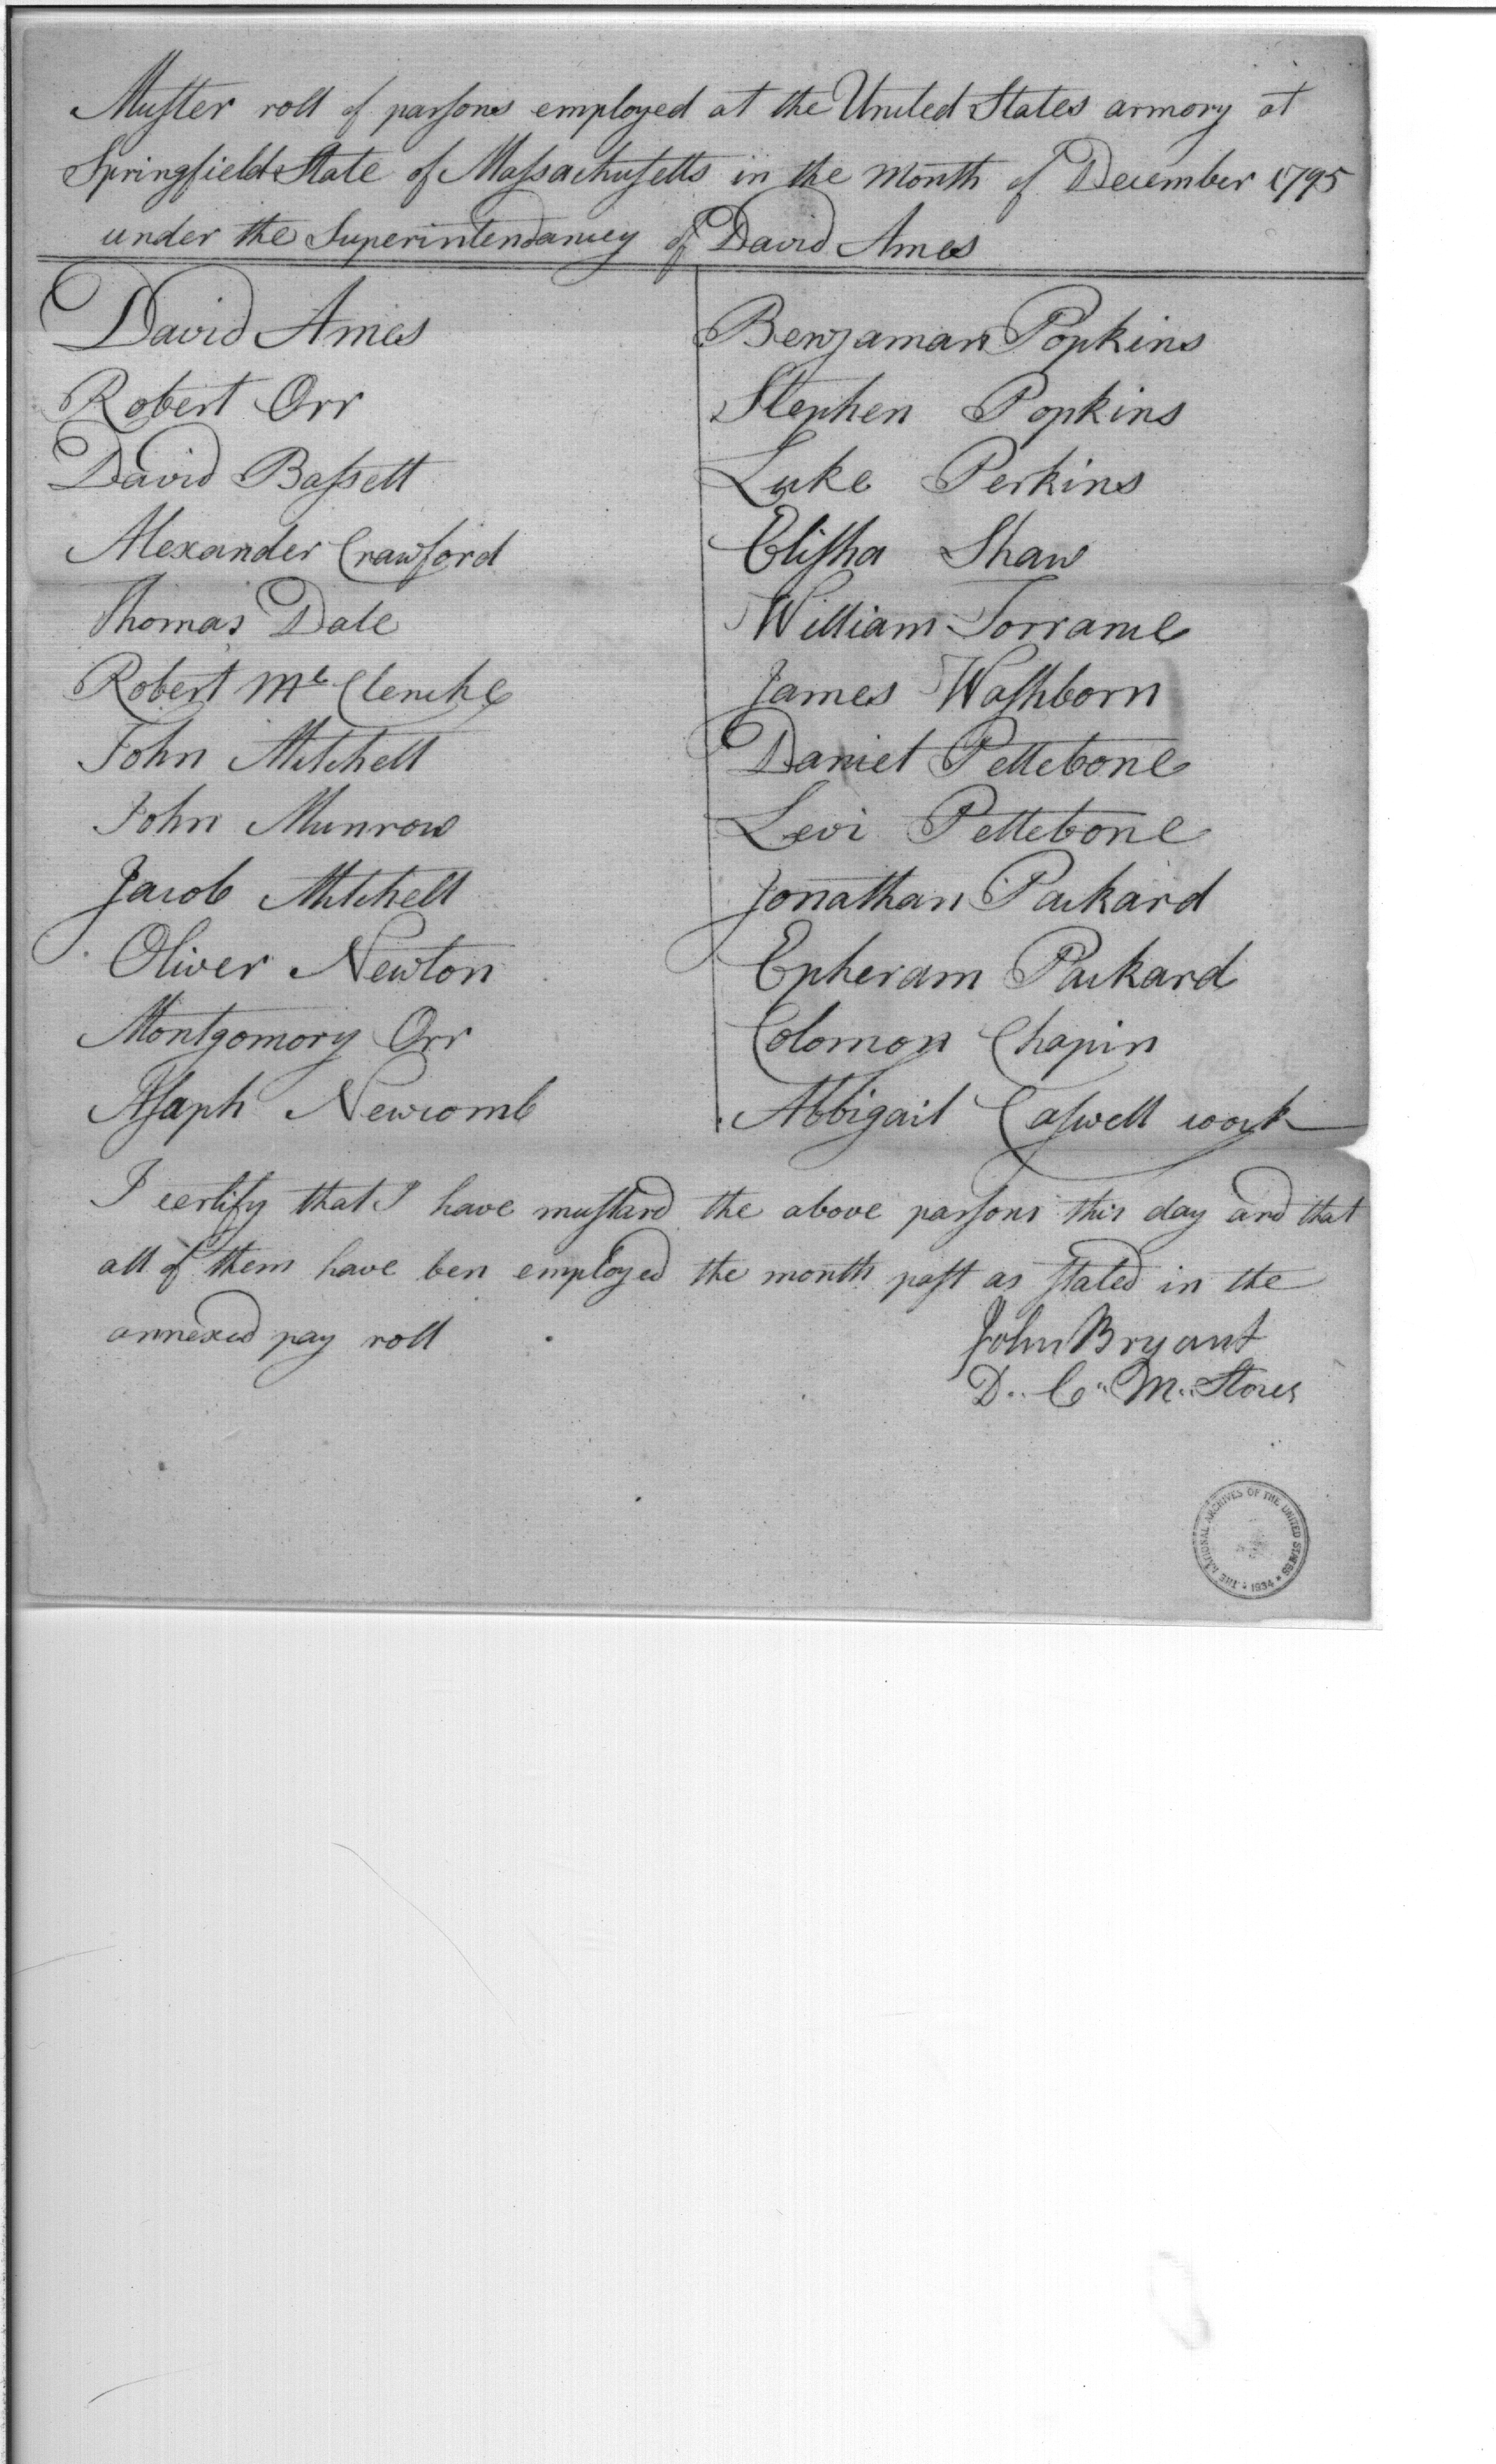 Muster roll of parsons employed at the United States armory at
Springfield State of Massachusetts in the Month of December 1795
under the Superintendancey of David Ames
David Ames
Robert Orr
David Bassett
Alexander Crawford
Thomas Dale
Robert Mc Clenche
John Mitchell
John Munrow
Jacob Mitchell
Oliver Newton
Montgomory Orr
Asaph Newcomb
Benjaman Popkins
Stephen Popkins
Luke Perkins
Elisha Shaw
William Torrance
James Washborn
Daniel Pettebone
Levi Pettebone
Jonathan Packard
Epheram Packard
Colomon Chapin
Abbigail Caswell cook
I certify that I have mustard the above parsons this day and that
all of them have ben employed the month past as stated in the
annexed pay roll
John Bryant
D. C. M. Stores
THE NATIONAL ARCHIVES OF THE UNITED STATES
1934